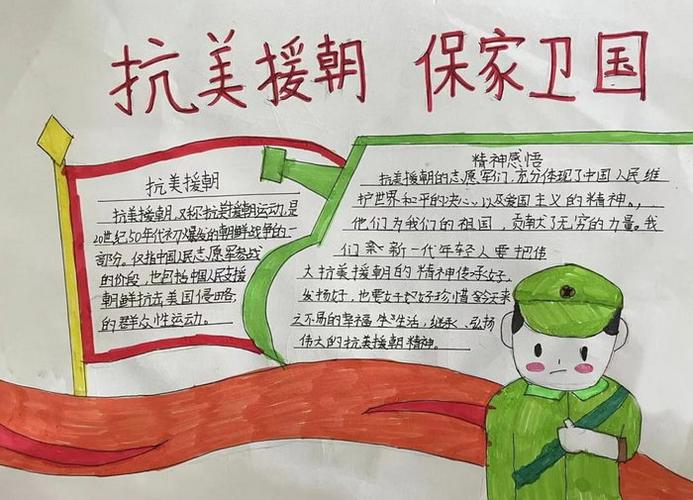 抗美援朝 保家卫国
抗美援朝
抗美援朝,又称抗美援朝运动,是
20世纪50年代初爆发的朝鲜战争的一
部分。仅指中国人民志愿军参战
的阶段,也包括中国人民支援
朝鲜抗击美国侵略,
的群众性运动。
精神感悟
抗美援朝的志愿军们,充分体现了中国人民维
护世界和平的决心以及爱国主义的精神。,
他们为我们的祖国,贡献了无穷的力量。我
们新一代年轻人要把伟
大抗美援朝的精神传承好,
发扬好,也要好好珍惜今天来
之不易的幸福生活,继承、弘扬
伟大的抗美援朝精神。